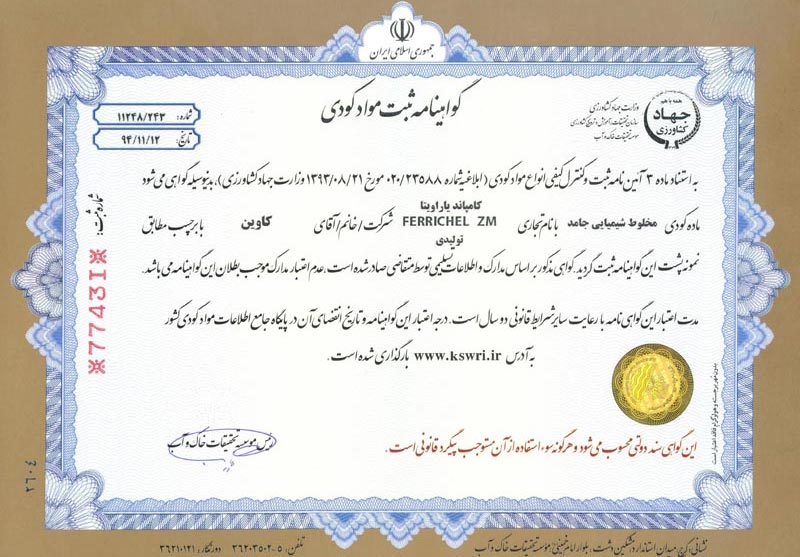 جمهوری اسلامی ایران
گواهینامه ثبت مواد کودی
شماره: ۱۱۲۴۸/۲۴۳
تاریخ: ۹۴/۱۱/۱۲
همه با هم
جهاد
کشاورزی
وزارت جهاد کشاورزی
سازمان تحقیقات، آموزش و ترویج کشاورزی
موسسه تحقیقات خاک و آب
به استناد ماده ۳ آئین نامه ثبت و کنترل کیفی انواع مواد کودی (ابلاغیه شماره ۰۲۰/۲۳۵۸۸ مورخ ۱۳۹۳/۰۸/۲۱ وزارت جهاد کشاورزی)، بدینوسیله گواهی می شود
ماده کودی مخلوط شیمیایی جامد با نام تجاری کامپاند یاراویتا FERRICHEL ZM تولیدی شرکت/خانم/آقای کاوین با برچسب مطابق
نمونه پشت این گواهینامه ثبت گردید. گواهی مذکور بر اساس مدارک و اطلاعات تسلیمی توسط متقاضی صادر شده است. عدم اعتبار مدارک موجب بطلان این گواهینامه می باشد.
مدت اعتبار این گواهی نامه با رعایت سایر شرایط قانونی دو سال است. درجه اعتبار این گواهینامه و تاریخ انقضای آن در پایگاه جامع اطلاعات مواد کودی کشور
به آدرس www.kswri.ir بارگذاری شده است.
رئیس موسسه تحقیقات خاک و آب
این گواهی سند دولتی محسوب می شود و هرگونه سوء استفاده از آن مستوجب پیگرد قانونی است.
بدون مهر برجسته و هولوگرام فاقد اعتبار است
شماره ثبت:
77431
۲۶۰۴
نشانی: کرج، میدان استاندارد، مشکین دشت، بلوار امام خمینی(ره) موسسه تحقیقات خاک و آب
تلفن: ۵-۳۶۲۰۳۵۰۲ دورنگار: ۳۶۲۱۰۱۲۱